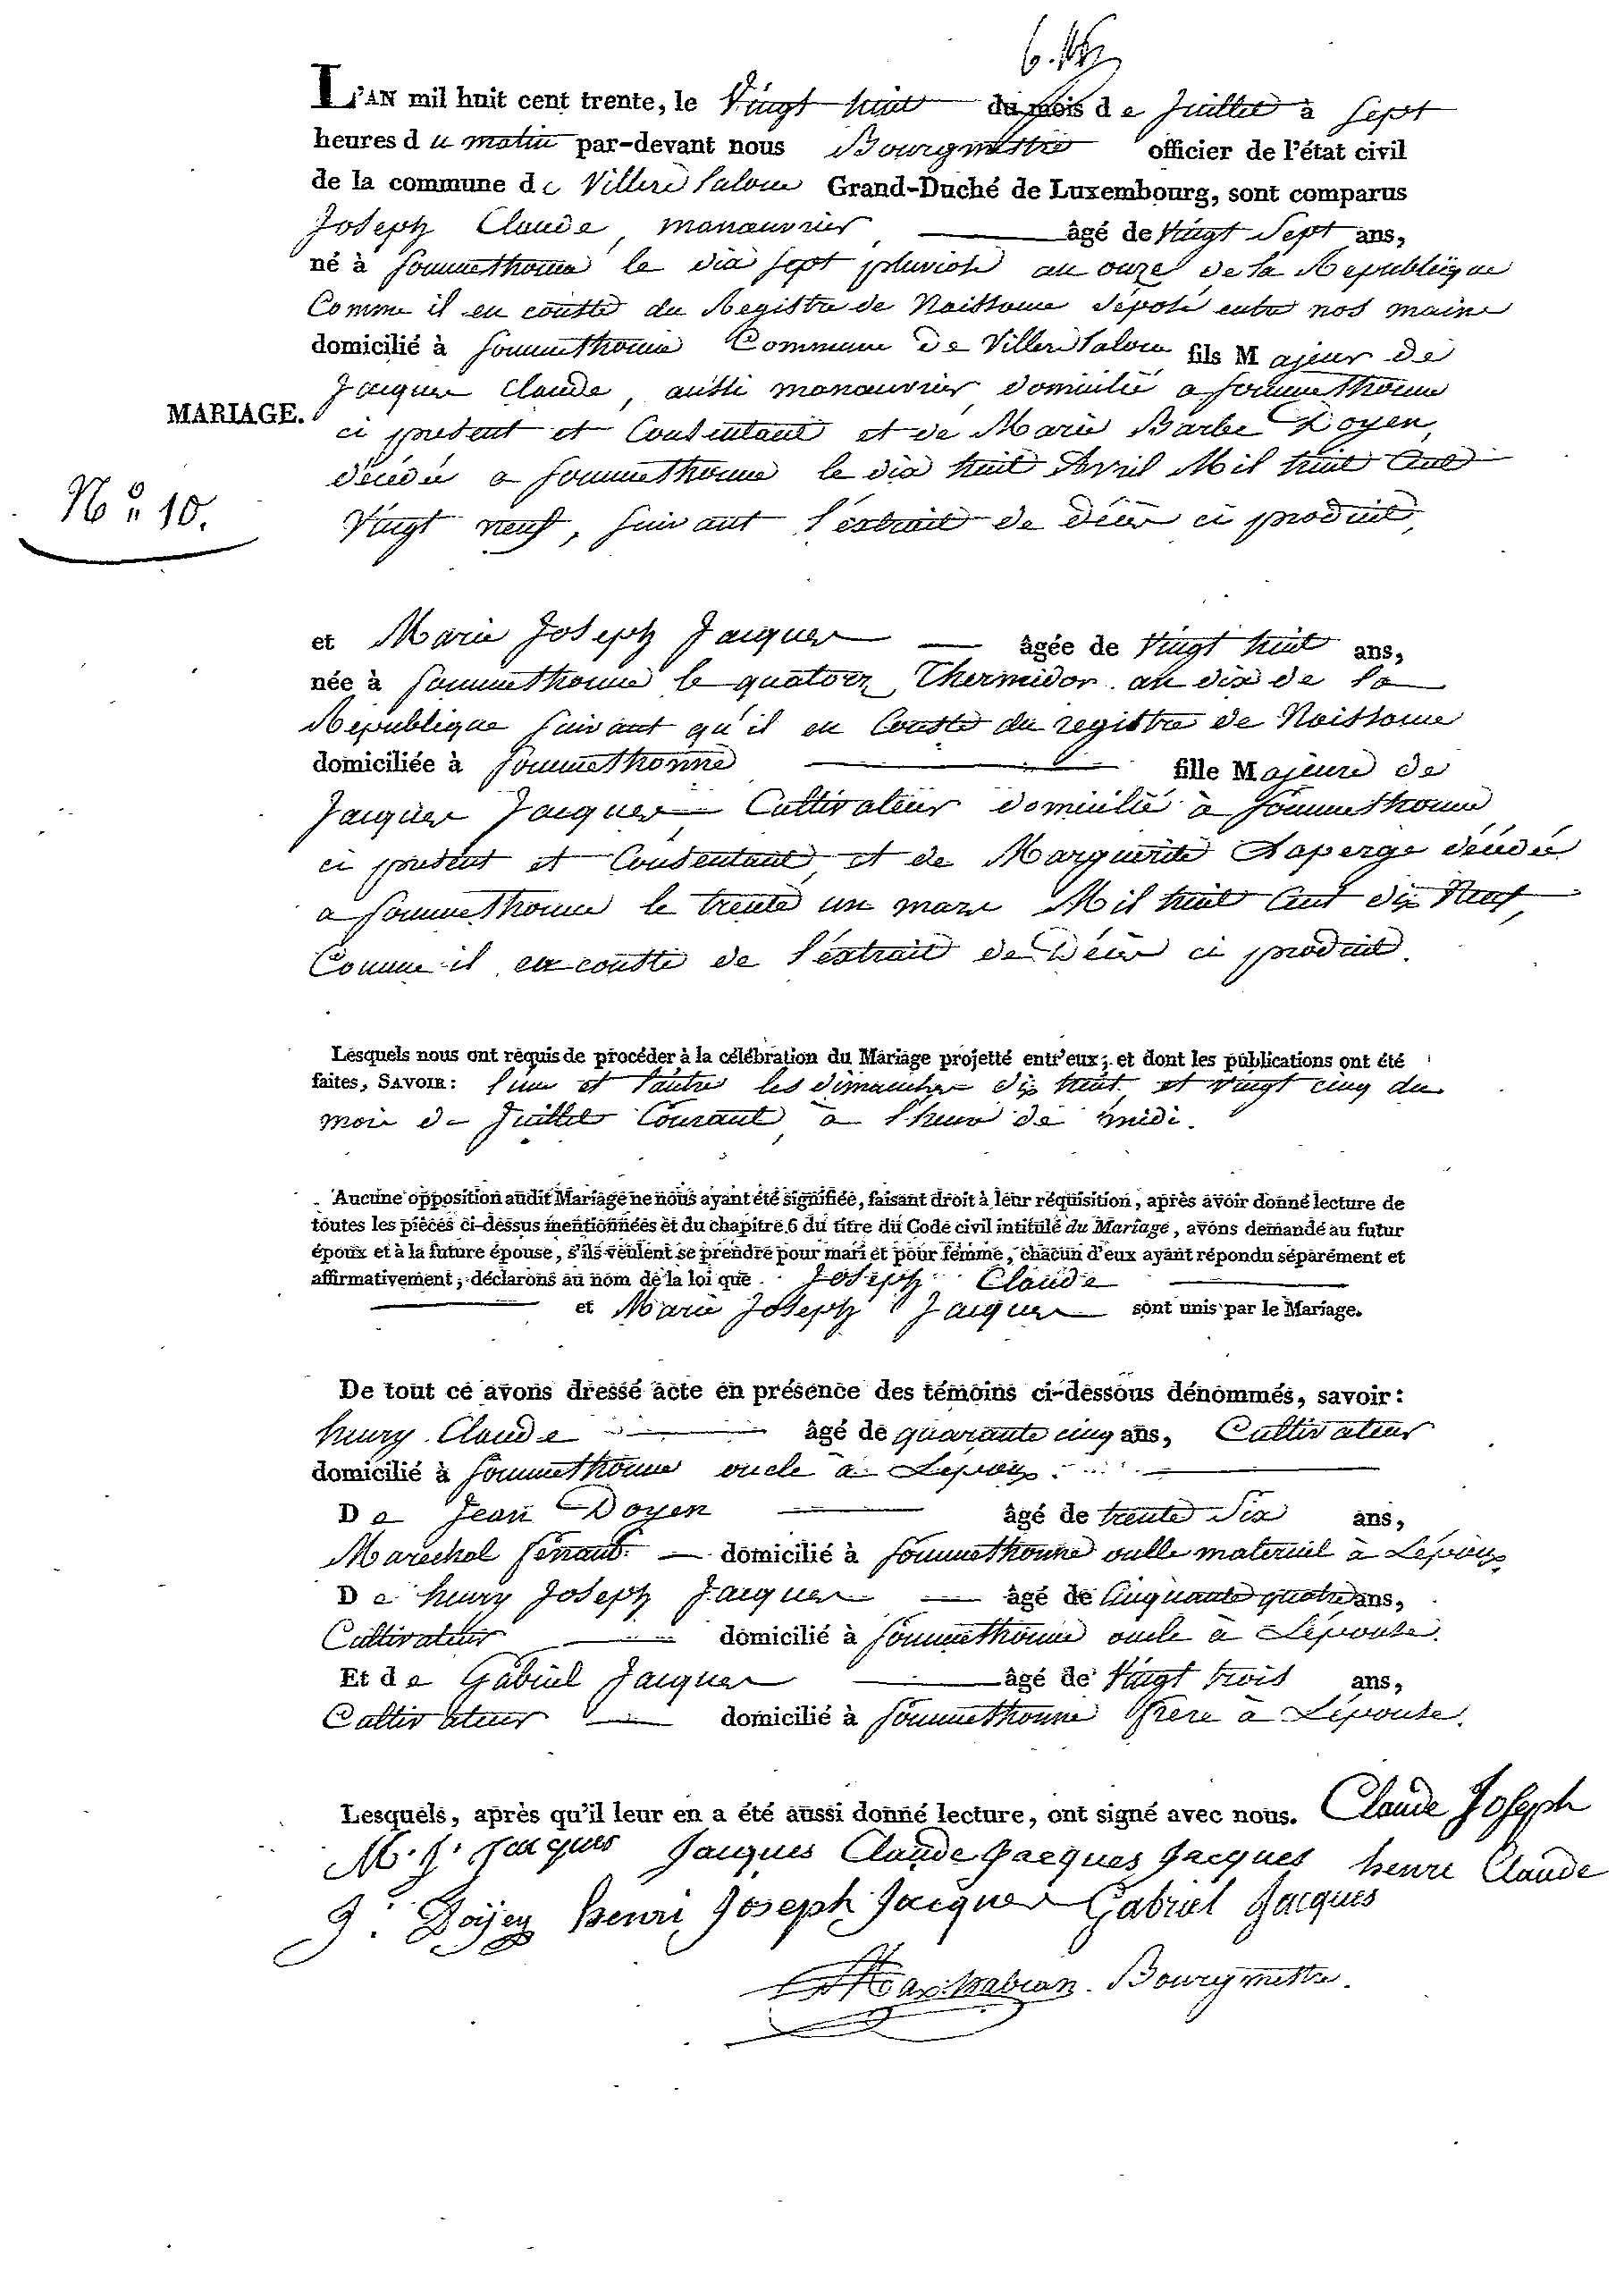 L'AN mil huit cent trente, le Vingt huit du mois de Juillet à Sept
heures du matin par-devant nous Bourgmestre officier de l'état civil
de la commune de Villers Laloue Grand-Duché de Luxembourg, sont comparus
Joseph Claude, manœuvrier, âgé de Vingt Sept ans,
né à Sommethonne le dix sept pluviose an onze de la République
Comme il en conste du Registre de Naissance déposé entre nos mains
domicilié à Sommethonne Commune de Villers Laloue fils Majeur de
Jacques Claude, aussi manœuvrier, domicilié a Sommethonne
MARIAGE.
ci present et Consentant et de Marie Barbe Doyen,
décédée a Sommethonne le dix huit Avril Mil huit Cent
N° 10.
Vingt neuf, suivant l'extrait de décès ci produit,
et Marie Joseph Jacques âgée de Vingt huit ans,
née à Sommethonne le quatorze Thermidor an dix de la
République suivant qu'il en Conste du registre de Naissance
domiciliée à Sommethonne fille Majeure de
Jacques Jacques Cultivateur domicilié à Sommethonne
ci present et Consentant et de Marguerite Laperge décédée
a Sommethonne le trente un mars Mil huit Cent dix Neuf,
Comme il en conste de l'extrait de Décès ci produit.
Lesquels nous ont requis de procéder à la célébration du Mariage projetté entr'eux; et dont les publications ont été
faites, SAVOIR: l'une et l'autre les dimanches dix huit et vingt cinq du
mois de Juillet Courant, à l'heure de midi.
Aucune opposition audit Mariage ne nous ayant été signifiée, faisant droit à leur réquisition, après avoir donné lecture de
toutes les pièces ci-dessus mentionnées et du chapitre 6 du titre du Code civil intitulé du Mariage, avons demandé au futur
époux et à la future épouse, s'ils veulent se prendre pour mari et pour femme, chacun d'eux ayant répondu séparément et
affirmativement, déclarons au nom de la loi que Joseph Claude
et Marie Joseph Jacques sont unis par le Mariage.
De tout ce avons dressé acte en présence des témoins ci-dessous dénommés, savoir:
henry Claude âgé de quarante cinq ans, Cultivateur
domicilié à Sommethonne oncle à Lepoux.
De Jean Doyen âgé de trente Six ans,
Maréchal ferrant domicilié à Sommethonne oncle maternel à Lépoux
De henry Joseph Jacques âgé de Cinquante quatre ans,
Cultivateur domicilié à Sommethonne oncle à Lépouse.
Et de Gabriel Jacques âgé de Vingt trois ans,
Cultivateur domicilié à Sommethonne frere à Lépouse.
Lesquels, après qu'il leur en a été aussi donné lecture, ont signé avec nous. Claude Joseph
M. J. Jacques Jacques Claude Jacques Jacques henri Claude
J. Doijen henri Joseph Jacques Gabriel Jacques
Bourgmestre.